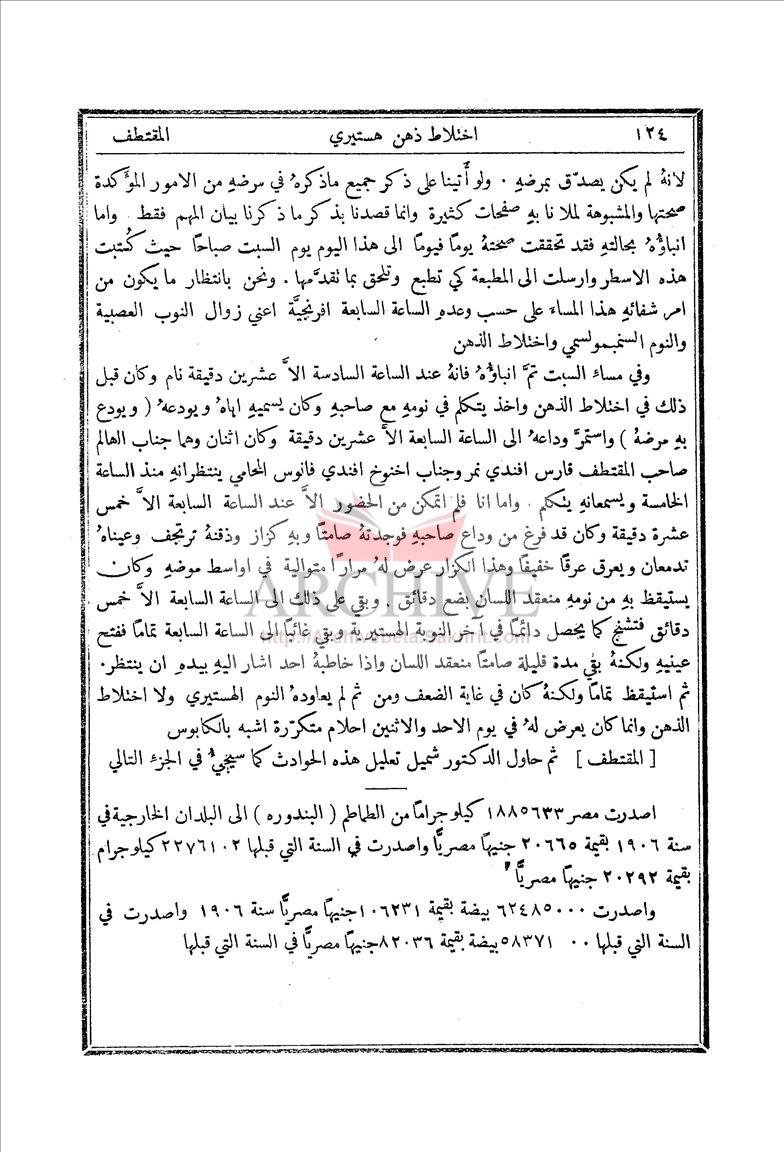 ١٢٤ اختلاط ذهن هستيري المقتطف
لانهُ لم يكن يصدّق بمرضهِ . ولو أتينا على ذكر جميع ماذكرهُ في سرضهِ من الامور المؤَكدة
صحتها والمشبوهة لملا نا بهِ صفحات كثيرة وانما قصدنا بذكر ما ذكرنا بيان المهم فقط . واما
انباؤُهُ بحالتهِ فقد تحققت صحتهُ يومًا فيومًا الى هذا اليوم يوم السبت صباحًا حيث كُتبت
هذه الاسطر وارسلت الى المطبعة كي تطبع وتلحق بما تقدَّمها . ونحن بانتظار ما يكون من
امر شفائهِ هذا المساءَ على حسب وعدهِ الساعة السابعة افرنجيَّة اعني زوال النوب العصبية
والنوم السنمبولسمي واختلاط الذهن
وفي مساء السبت تمَّ انباؤُهُ فانهُ عند الساعة السادسة الاَّ عشرين دقيقة نام وكان قبل
ذلك في اختلاط الذهن واخذ يتكلم في نومهِ مع صاحبهِ وكان يسميهِ اباهُ ويودعهُ ( ويودع
بهِ مرضهُ ) واستمرَّ وداعهُ الى الساعة السابعة الاَّ عشرين دقيقة وكان اثنان وهما جناب العالم
صاحب المقتطف فارس افندي نمر وجناب اخنوخ افندي فانوس المحامي ينتظرانهِ منذ الساعة
الخامسة ويسمعانهِ يتكلم . واما انا فلم اتمكن من الحضور الاَّ عند الساعة السابعة الاَّ خمس
عشرة دقيقة وكان قد فرغ من وداع صاحبهِ فوجدتهُ صامتًا وبهِ كزاز وذقنهُ ترتجف وعيناهُ
تدمعان ويعرق عرقًا خفيفًا وهذا انكزاز عرض لهُ مرارًا متوالية في اواسط موضهِ وكان
يستيقظ بهِ من نومهِ منعقد اللسان بضع دقائق . وبقي على ذلك الى الساعة السابعة الاَّ خمس
دقائق فتشنج كما يحصل دائمًا في آخر النوبة الهستيرية وبقي غائبًا الى الساعة السابعة تمامًا ففتح
عينيهِ ولكنهُ بقي مدة قليلة صامتًا منعقد اللسان واذا خاطبهُ احد اشار اليهِ بيدهِ ان ينتظر.
ثم استيقظ تمامًا ولكنهُ كان في غاية الضعف ومن ثم لم يعاودهُ النوم الهستيري ولا اختلاط
الذهن وانما كان يعرض لهُ في يوم الاحد والاثنين احلام متكرّرة اشبه بالكابوس
[ المقتطف ] ثم حاول الدكتور شميل تعليل هذه الحوادث كما سيجيءُ في الجزء التالي
اصدرت مصر ١٨٨٥٦٣٣ كيلوجرامًا من الطماطم ( البندوره ) الى البلدان الخارجية في
سنة ١٩٠٦ بقيمة ٢٠٦٦٥ جنيهًا مصريًّا واصدرت في السنة التي قبلها ٢٢٧٦١٠٢ كيلوجرام
بقيمة ٢٠٢٩٢ جنيهًا مصريًّا
واصدرت ٦٢٤٨٥٠٠٠ بيضة بقيمة ١٠٦٢٣١ جنيهًا مصريًّا سنة ١٩٠٦ واصدرت في
السنة التي قبلها ٥٨٣٧١٠٠ بيضة بقيمة ٨٢٠٣٦ جنيهًا مصريًّا في السنة التي قبلها
ARCHIVE